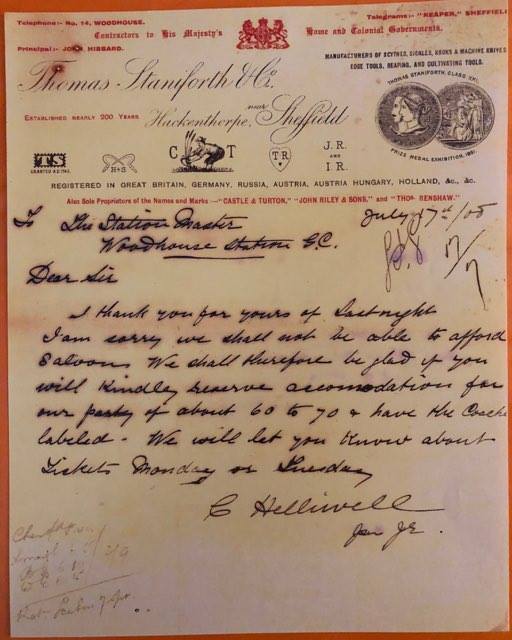 Telephone:- No. 14, WOODHOUSE.
Telegrams:- "REAPER," SHEFFIELD
Contractors to His Majesty's Home and Colonial Governments.
Principal:- JOHN HIBBARD.
MANUFACTURERS OF SCYTHES, SICKLES, HOOKS & MACHINE KNIVES
EDGE TOOLS, REAPING, AND CULTIVATING TOOLS.
Thomas Staniforth & Co.
THOMAS STANIFORTH, CLASS XXI.
ESTABLISHED NEARLY 200 YEARS
Hackenthorpe, near Sheffield
PRIZE MEDAL EXHIBITION, 1851
TS
H & S
C T
T.R
J.R.
AND
I.R.
REGISTERED IN GREAT BRITAIN, GERMANY, RUSSIA, AUSTRIA, AUSTRIA HUNGARY, HOLLAND, &c., &c.
Also Sole Proprietors of the Names and Marks — "CASTLE & TURTON," "JOHN RILEY & SONS," and "THOS. RENSHAW."
To The Station Master
July 17th/08
Woodhouse Station G.C.
17/7
Dear Sir
I thank you for yours of Last night
I am sorry we shall not be able to afford
Saloons. We shall therefore be glad if you
will Kindly reserve accomodation for
our party of about 60 to 70 & have the Coache
labeled - We will let you Know about
Tickets Monday or Tuesday
C Helliwell